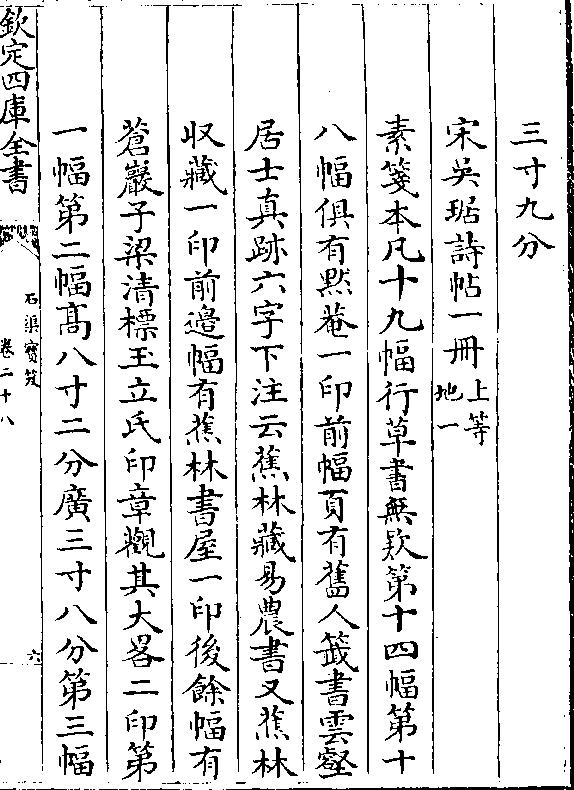 三寸九分
宋吳琚詩帖一冊上等
地一
素箋本凡十九幅行草書無欵第十四幅第十
八幅俱有黙菴一印前幅頁有舊人籤書雲壑
居士真跡六字下注云蕉林藏易農書又蕉林
収藏一印前邉幅有蕉林書屋一印後餘幅有
蒼巖子梁清標玉立氏印章觀其大畧二印第
一幅第二幅髙八寸二分廣三寸八分第三幅
欽定四庫全書
石渠寶笈
卷二十八
六